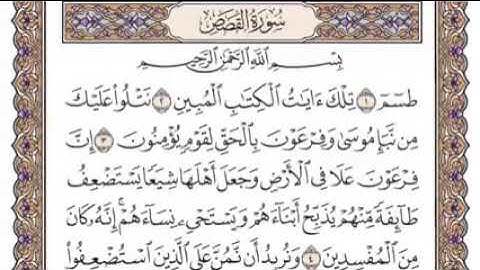 سُورَةُ الْقَصَصِ
بِسْمِ اللَّهِ الرَّحْمَٰنِ الرَّحِيمِ
طسٓمٓ ١ تِلْكَ ءَايَٰتُ الْكِتَٰبِ الْمُبِينِ ٢ نَتْلُوا۟ عَلَيْكَ
مِن نَّبَإِ مُوسَىٰ وَفِرْعَوْنَ بِالْحَقِّ لِقَوْمٍ يُؤْمِنُونَ ٣ إِنَّ
فِرْعَوْنَ عَلَا فِى الْأَرْضِ وَجَعَلَ أَهْلَهَا شِيَعًا يَسْتَضْعِفُ
طَآئِفَةً مِّنْهُمْ يُذَبِّحُ أَبْنَآءَهُمْ وَيَسْتَحْىِۦ نِسَآءَهُمْ ۚ إِنَّهُۥ كَانَ
مِنَ الْمُفْسِدِينَ ٤ وَنُرِيدُ أَن نَّمُنَّ عَلَى الَّذِينَ اسْتُضْعِفُوا۟